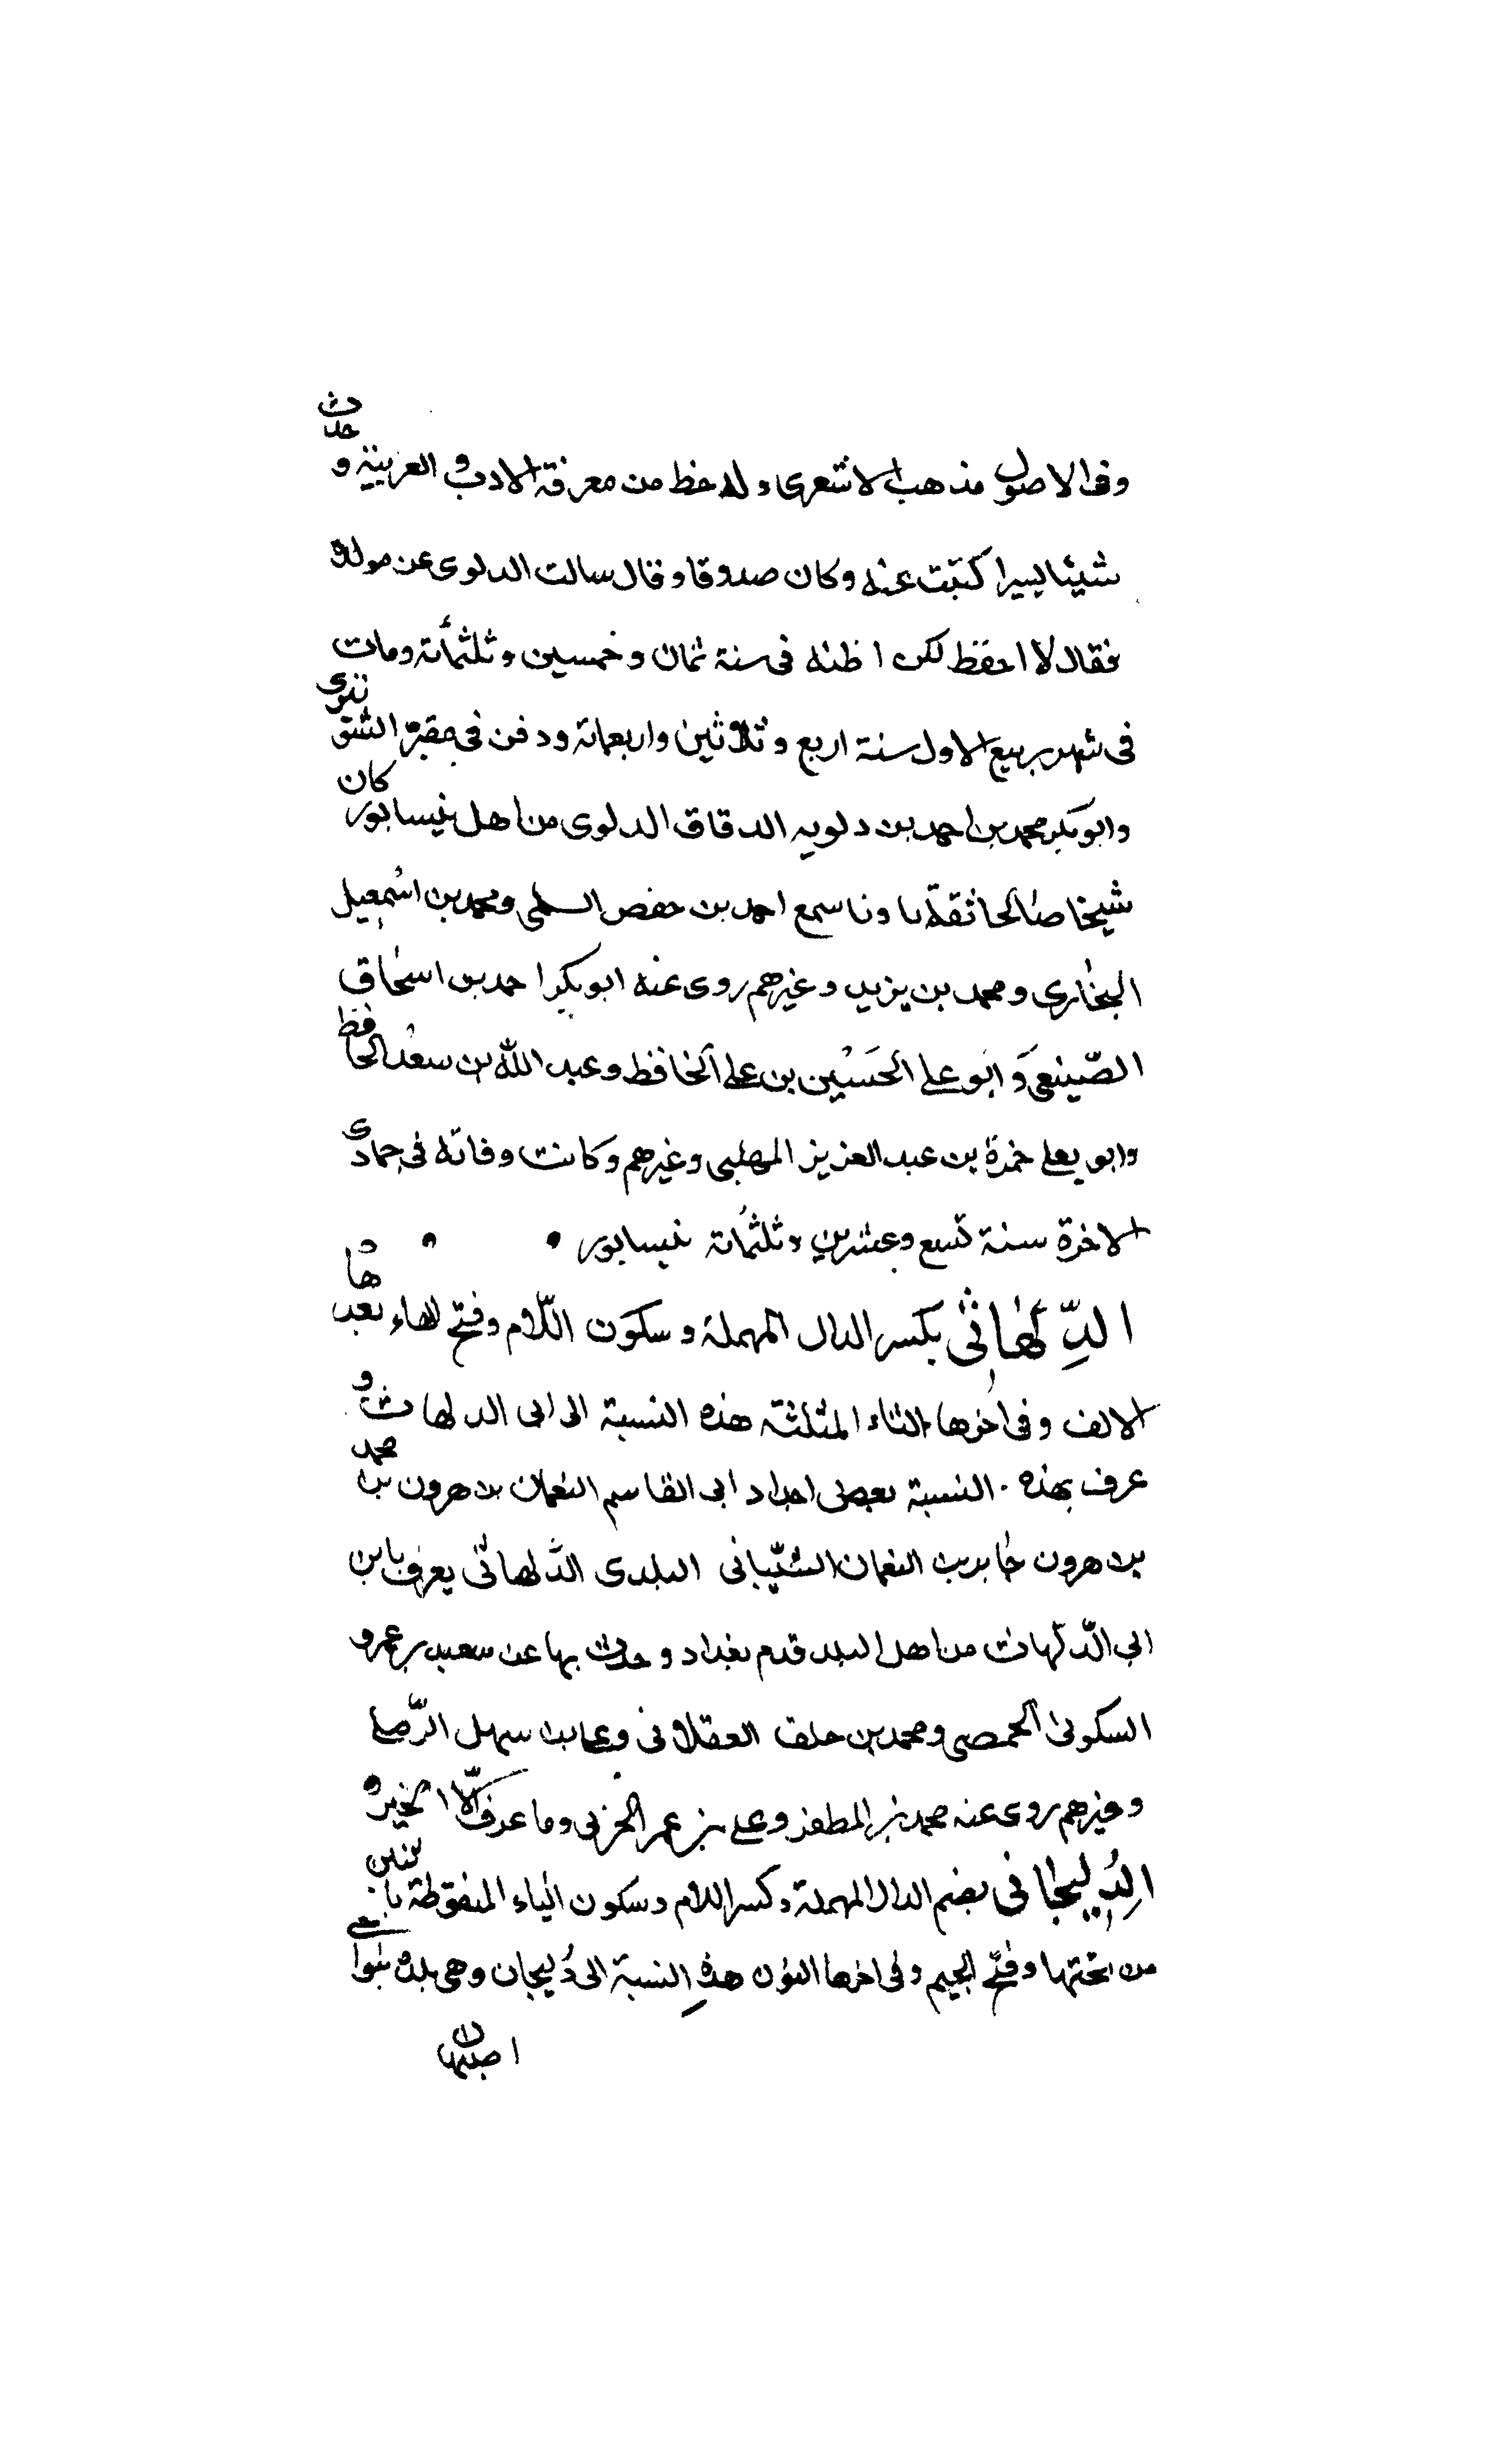 وفى الاصول مذهب الاشعرى وله حظ من معرفة الادب و العربية و حدث
شيئا يسيرا كتبت عنه وكان صدوقا وقال سالت الدلوى عن مولده
فقال لا احفظ لكن اظنه فى سنة ثمان وخمسين وثلثمأته ومات
فى شهر ربيع الاول سنة اربع وثلاثين واربعمائة ودفن فى مقبرة الشونيزى
وابو بكر محمد بن احمد بن دلويه الدقاق الدلوى من اهل نيسابور كان
شيخا صالحا ثقة سمع احمد بن حفص السلمى ومحمد بن اسمعيل
البخارى ومحمد بن يزيد وغيرهم روى عنه ابو بكر احمد بن اسحاق
الصّبغى وَ ابو على الحَسَيْن بن على الحافظ وعبد الله بن سعْد الحافظ
وابو يعلى حمزة بن عبد العزيز المهلبى وغيرهم وكانت وفاته فى جمادى
الاخرة سنة تسع وعشرين وثلثمائة نيسابور
الدِّلهَاثى بكسر الدال المهملة وسكون اللّام وفتح الهاء بعدها
الالف وفى اخرها الثاء المثلثة هذه النسبة الى ابى الدلهاث و
عرف بهذه النسبة بعض اجداد ابى القاسم النعمان بن هرون بن محمد
بن هرون جابر بن النعمان الشيّبانى البلدى الدَّلهاثى يعرف بابن
ابى الدّلهاث من اهل البلد قدم بغداد وحدث بها عن سعيد بن عمرو
السكونى الحمصى ومحمد بن خلف العقلانى وعلى بن سهل الرّملى
وغيرهم روى عنه محمد بن المظفر وعلى بن عمر الحربى وما عرف الّا الخير
الدُليجانى بضم الدال المهملة وكسر اللام وسكون الياء المنقوطة باثنين
من تحتها وفتح الجيم وفى اخرها النون هذهِ النسبة الى دُليجان وهى بلدة بنواحى
اصبهان